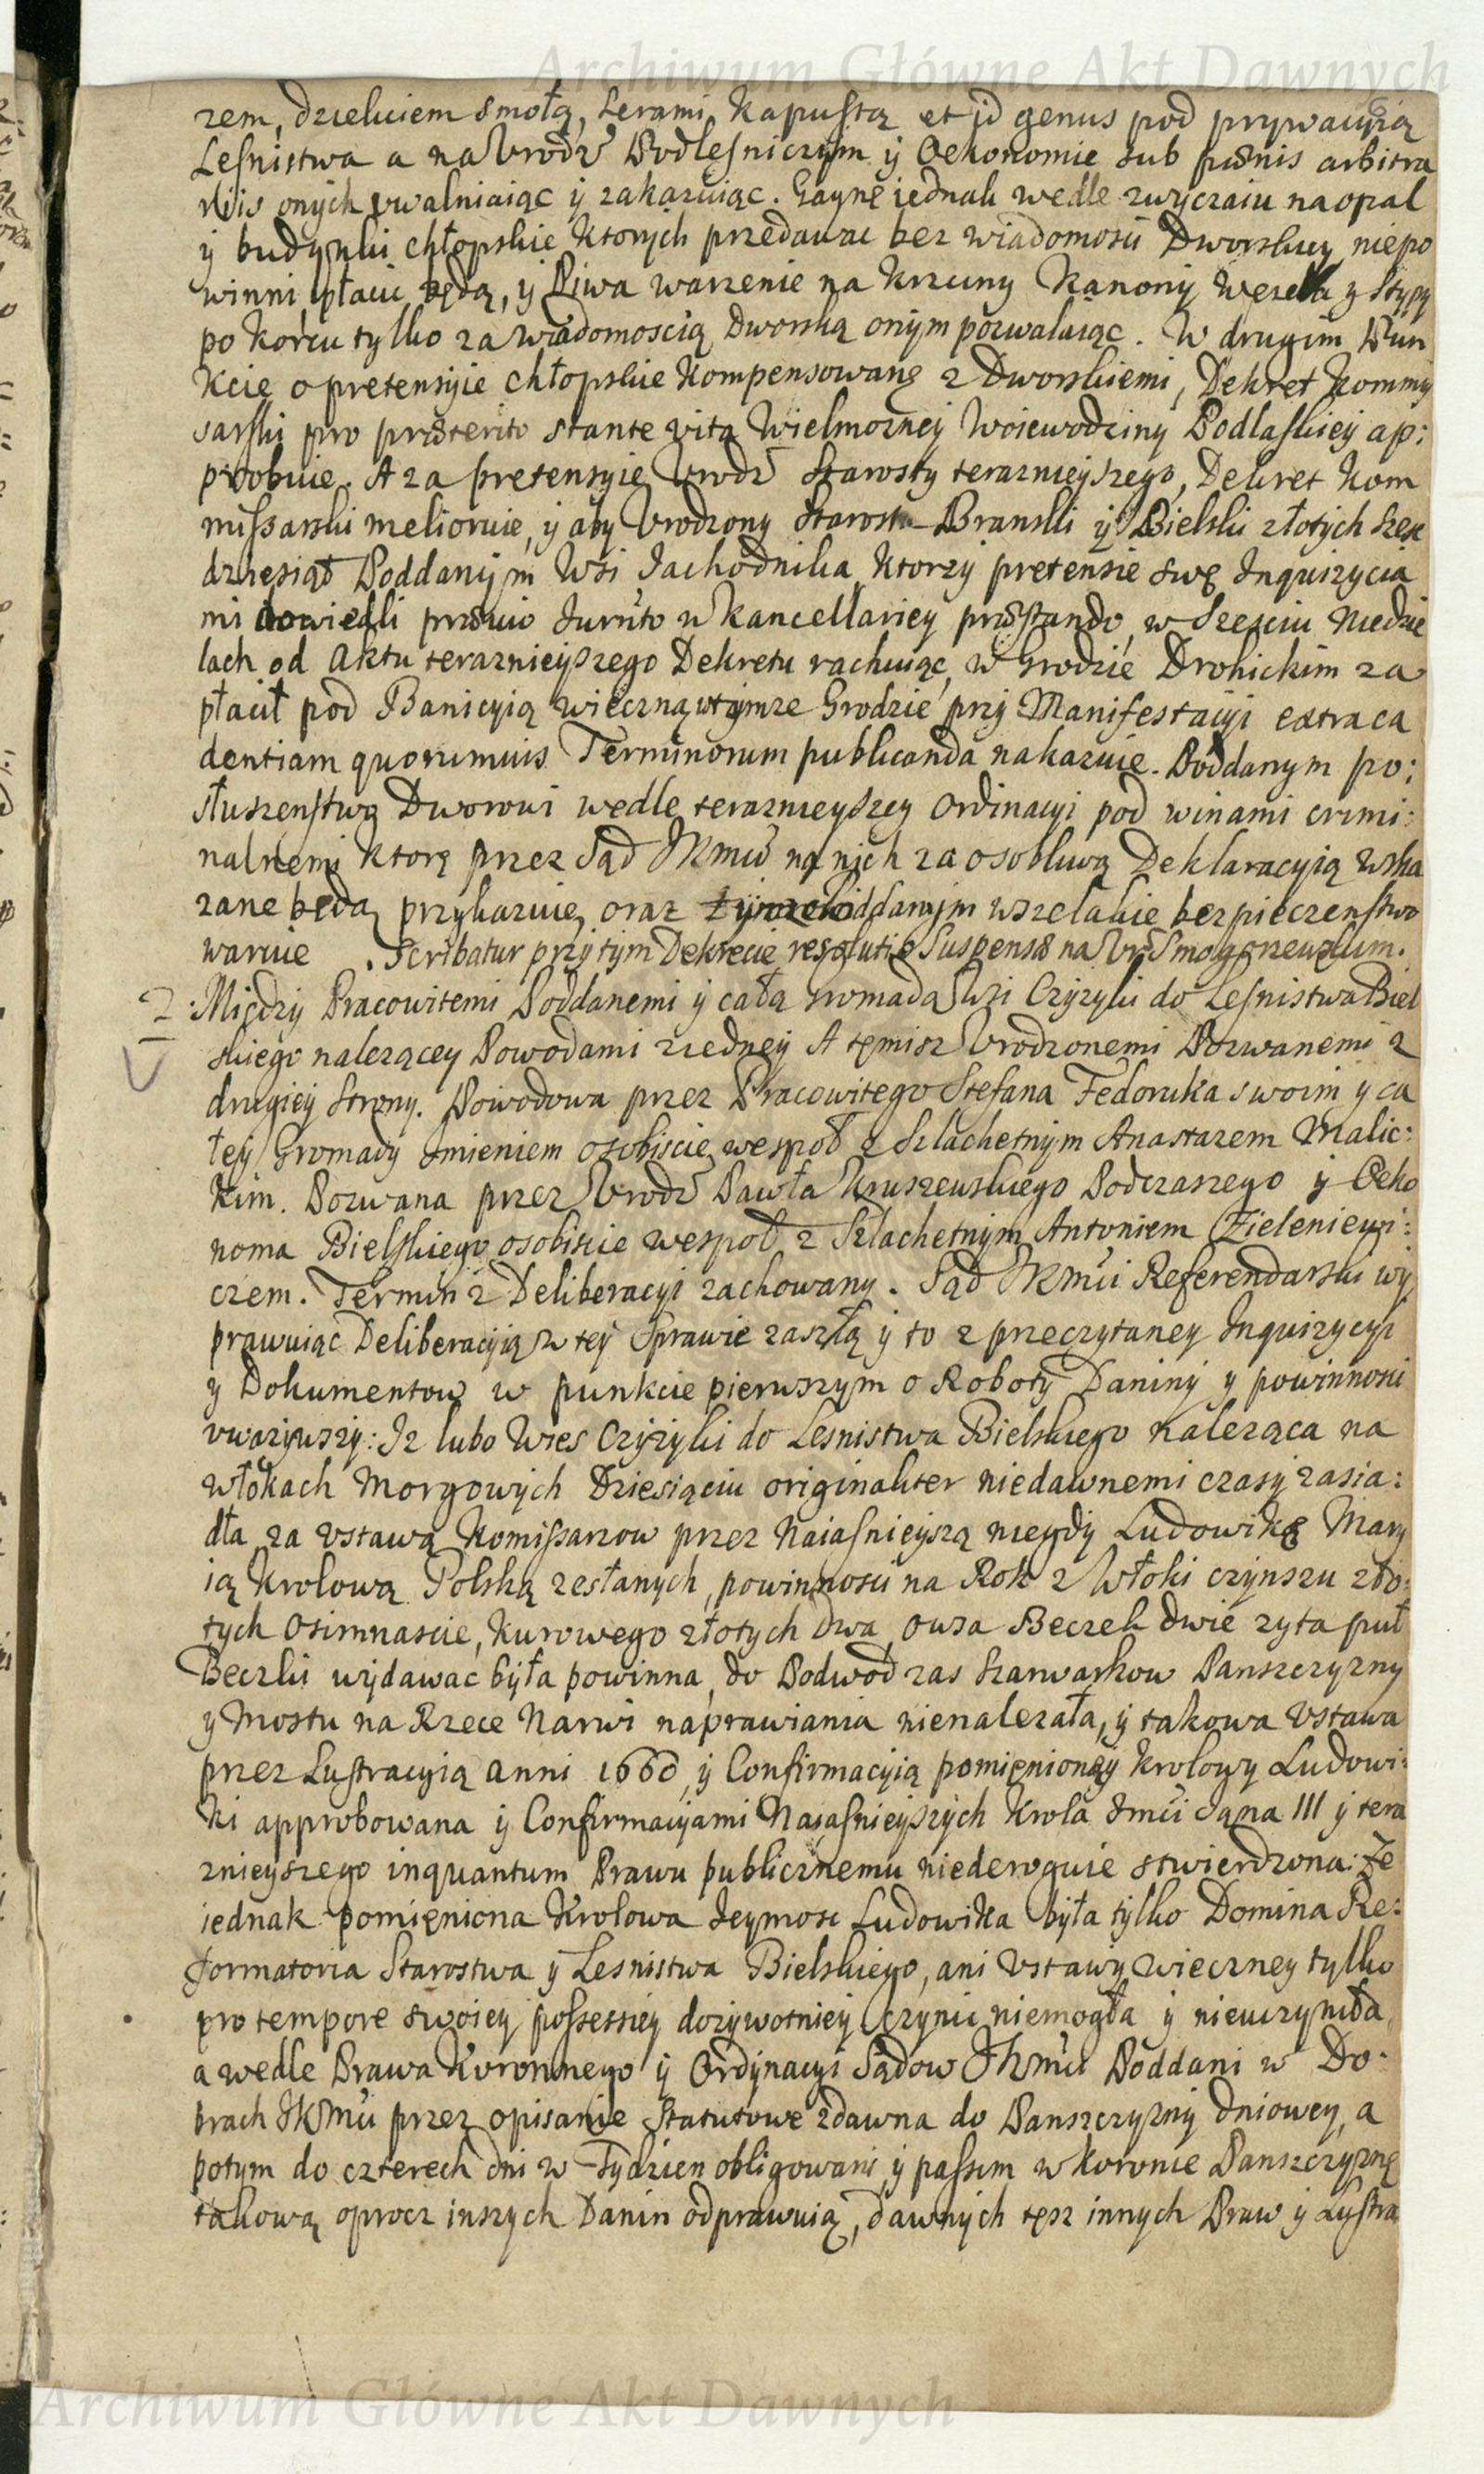 Archiwum Główne Akt Dawnych
rzem, dziekciem smołą, serami, kapustą et id genus pod prywacyią
Lesnistwa a na Vrodź Podlesniczym y Oekonomie sub pænis arbitra
riis onych vwalniaiąc y zakazuiąc. Gaynę iednak wedle zwyczaiu na opał
y budynki chłopskie ktorych przedawac bez wiadomosci Dworskiey niepo
winni płacic będą, y Piwa warzenie na krzciny Kanony Wesela y Stypy
po korcu tylko za wiadomoscią Dworską onym pozwalaiąc. W drugim Pun
kcie o pretensyie chłopskie kompensowane z Dworskiemi, Dekret kommi
sarski pro præterito stante vita Wielmozney Woiewodziny Podlaskiey ap:
probuie. A za pretensyie Vrodź Starosty terazniejszego, Dekret kom
missarski melioruie, y aby Vrodzony Starosta Branski y Bielski złotych szesc
dziesiąt Poddanym Wsi Jachodnika ktorzy pretensie swę Inquizycia
mi dowiedli prævio Iuram̃to w kancellariey præstando, w szesciu niedzie
lach od aktu terazniejszego Dekretu rachuiąc, w Grodzie Drohickim za
płacił pod Banicyią wieczną w tymze Grodzie przy Manifestacyi extra ca
dentiam quorumuis Terminorum publicanda nakazuie. Poddanym po:
słuszenstwo Dworowi wedle terazniejszey Ordinacyi pod winami crimi:
nalnemi ktorę przez Sąd JKmci na nich za osobliwą Deklaracyią wska
zane będą przykazuie, oraz Poddanym wszelakie bezpieczenstwo
waruie . Scribatur przy tym Dekrecie resolutio suspensæ na
2. Między Pracowitemi Poddanemi y całą Gromadą Wsi Czyzyki do Lesnistwa Biel
skiego nalezącey Powodami z iedney A temisz Vrodzonemi Pozwanemi z
drugiey strony. Powodowa przez Pracowitego Stefana Fedoruka swoim y ca
łey Gromady imieniem osobiscie wespoł z Szlachetnym Anastazem Malic:
kim. Pozwana przez Vrodź Pawła Kruszewskiego Podczaszego y Oeko
noma Bielskiego osobiscie wespoł z Szlachetnym Antoniem Zieleniewi:
czem. Termin z Deliberacyi zachowany. Sąd JKmci Referendarski wy
prawuiąc Deliberacyią w tey Sprawie zaszłą y to z przeczytaney Inquizycyi
y Dokumentow w punkcie pierwszym o Roboty Daniny y powinnosci
vwazywszy: Iz lubo Wies Czyzyki do Lesnistwa Bielskiego naleząca na
włokach Morgowych Dziesiąciu originaliter niedawnemi czasy zasia:
dła za vstawą Komissarzow przez Naiasnieyszą niegdy Ludowikę Mary
ią Krolową Polską zesłanych, powinnosci na Rok z Włoki czynszu zło:
tych Osimnascie, kurowego złotych dwa, owsa Beczek dwie zyta puł
Beczki wydawac była powinna, do Podwod zas szarwarkow Panszczyzny
y Mostu na Rzece Narwi naprawiania nienalezała, y takowa vstawa
przez Lustracyią anni 1660 y Confirmacyią pomięnioney krolowy Ludowi:
ki approbowana y Confirmacyiami Naiasnieyszych Krola Jmci Iana III y tera
znieyszego inquantum Prawu publicznemu niederoguie stwierdzona: Ze
iednak pomięniona Krolowa Jeymosc Ludowika była tylko Domina Re:
formatoria Starostwa y Lesnistwa Bielskiego, ani vstawy wieczney tylko
pro tempore swoiey possessiey dozywotniey czynic niemogła y nieuczyniła,
a wedle Prawa Koronnego y Ordynacyi Sądow JKmci Poddani w Do:
brach JKmci przez opisanie Statutowe zdawna do Panszczyzny dniowey, a
potym do czterech dni w Tydzien obligowani y passim w koronie Panszczyznę
takową oprocz inszych Danin odprawuią, dawnych tesz innych Praw y Lustra
Archiwum Główne Akt Dawnych